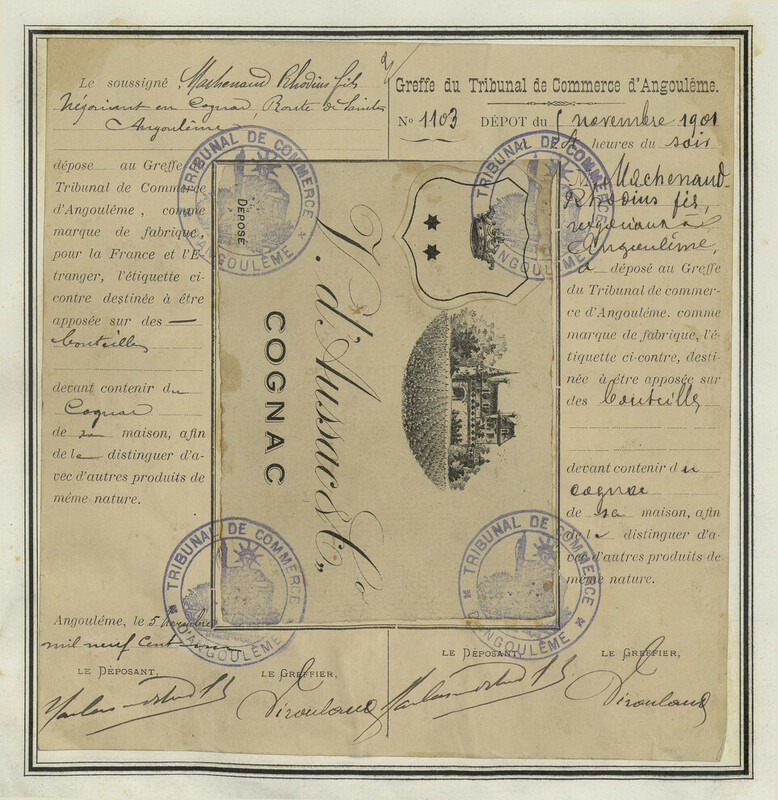 Le soussigné, Machenaud Rhodius fils
Négociant en Cognac, Route de Saintes
Angoulême
dépose au Greffe du
Tribunal de Commerce
d'Angoulême, comme
marque de fabrique,
pour la France et l'É-
tranger, l'étiquette ci-
contre destinée à être
apposée sur des —
bouteilles
devant contenir du
Cognac
de sa maison, afin
de la distinguer d'a-
vec d'autres produits de
même nature.
Angoulême, le 5 novembre
mil neuf cent un
LE DÉPOSANT,
LE GREFFIER,
Greffe du Tribunal de Commerce d'Angoulême.
No 1103 DÉPOT du 5 novembre 1901
heures du soir
M. Machenaud-
Rhodius fils,
négociant à
Angoulême,
a déposé au Greffe
du Tribunal de commer-
ce d'Angoulême. comme
marque de fabrique, l'é-
tiquette ci-contre, desti-
née à être apposée sur
des bouteilles
devant contenir du
cognac
de sa maison, afin
de la distinguer d'a-
vec d'autres produits de
même nature.
LE DÉPOSANT,
LE GREFFIER,
DÉPOSÉ
V. d'Aussac & Co,
COGNAC
TRIBUNAL DE COMMERCE
D'ANGOULÊME
TRIBUNAL DE COMMERCE
D'ANGOULÊME
TRIBUNAL DE COMMERCE
D'ANGOULÊME
TRIBUNAL DE COMMERCE
D'ANGOULÊME